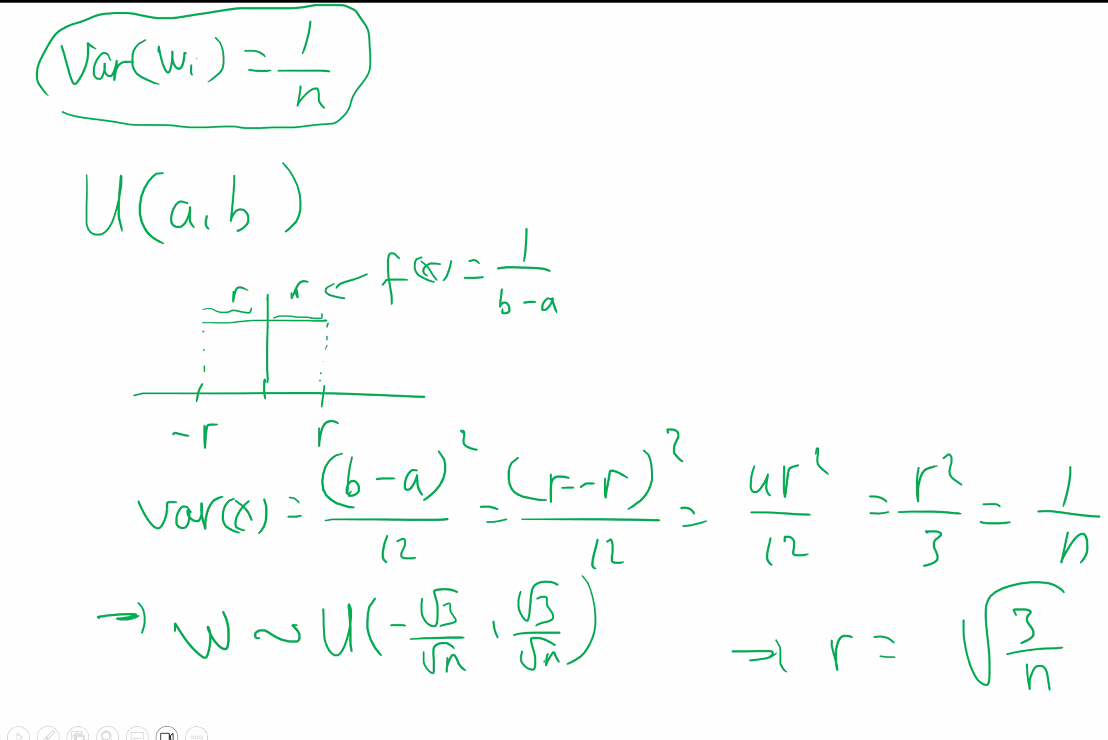 Var(wᵢ) = 1/n
U(a, b)
r r ← f(x) = 1/(b-a)
-r r
var(x) = (b-a)²/12 = (r--r)²/12 = 4r²/12 = r²/3 = 1/n
→ W ~ U(-√3/√n, √3/√n) → r = √(3/n)